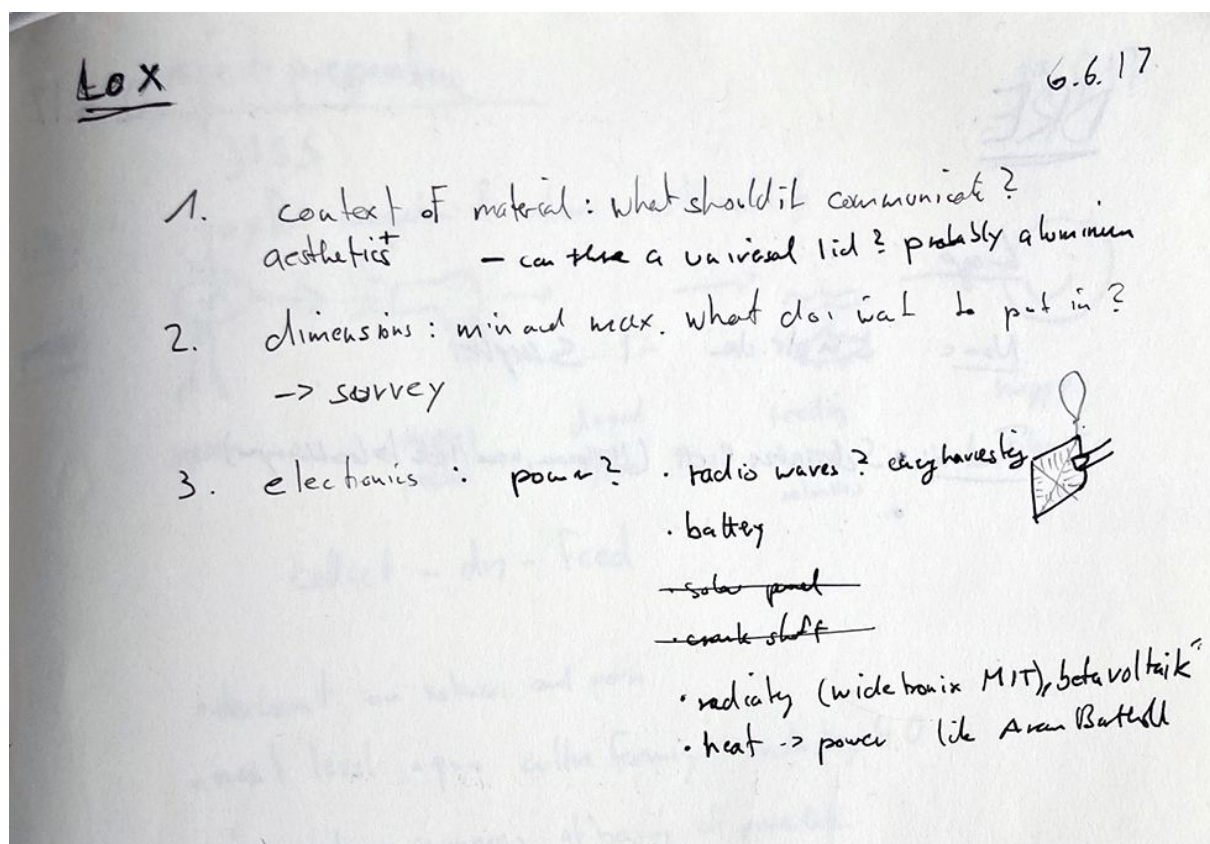 LoX
6.6.17
1. context of material: what should it communicat?
aesthetics + - can thre a univrsal lid? probably aluminium
2. dimensions: min and max. what do i wat to put in?
-> survey
3. electronics: power? • radio waves? energharvesting
• battery
• solar panel
• crank shaft
• (widetronix MIT), betavoltaik"
• heat -> power like Aram Bartholl